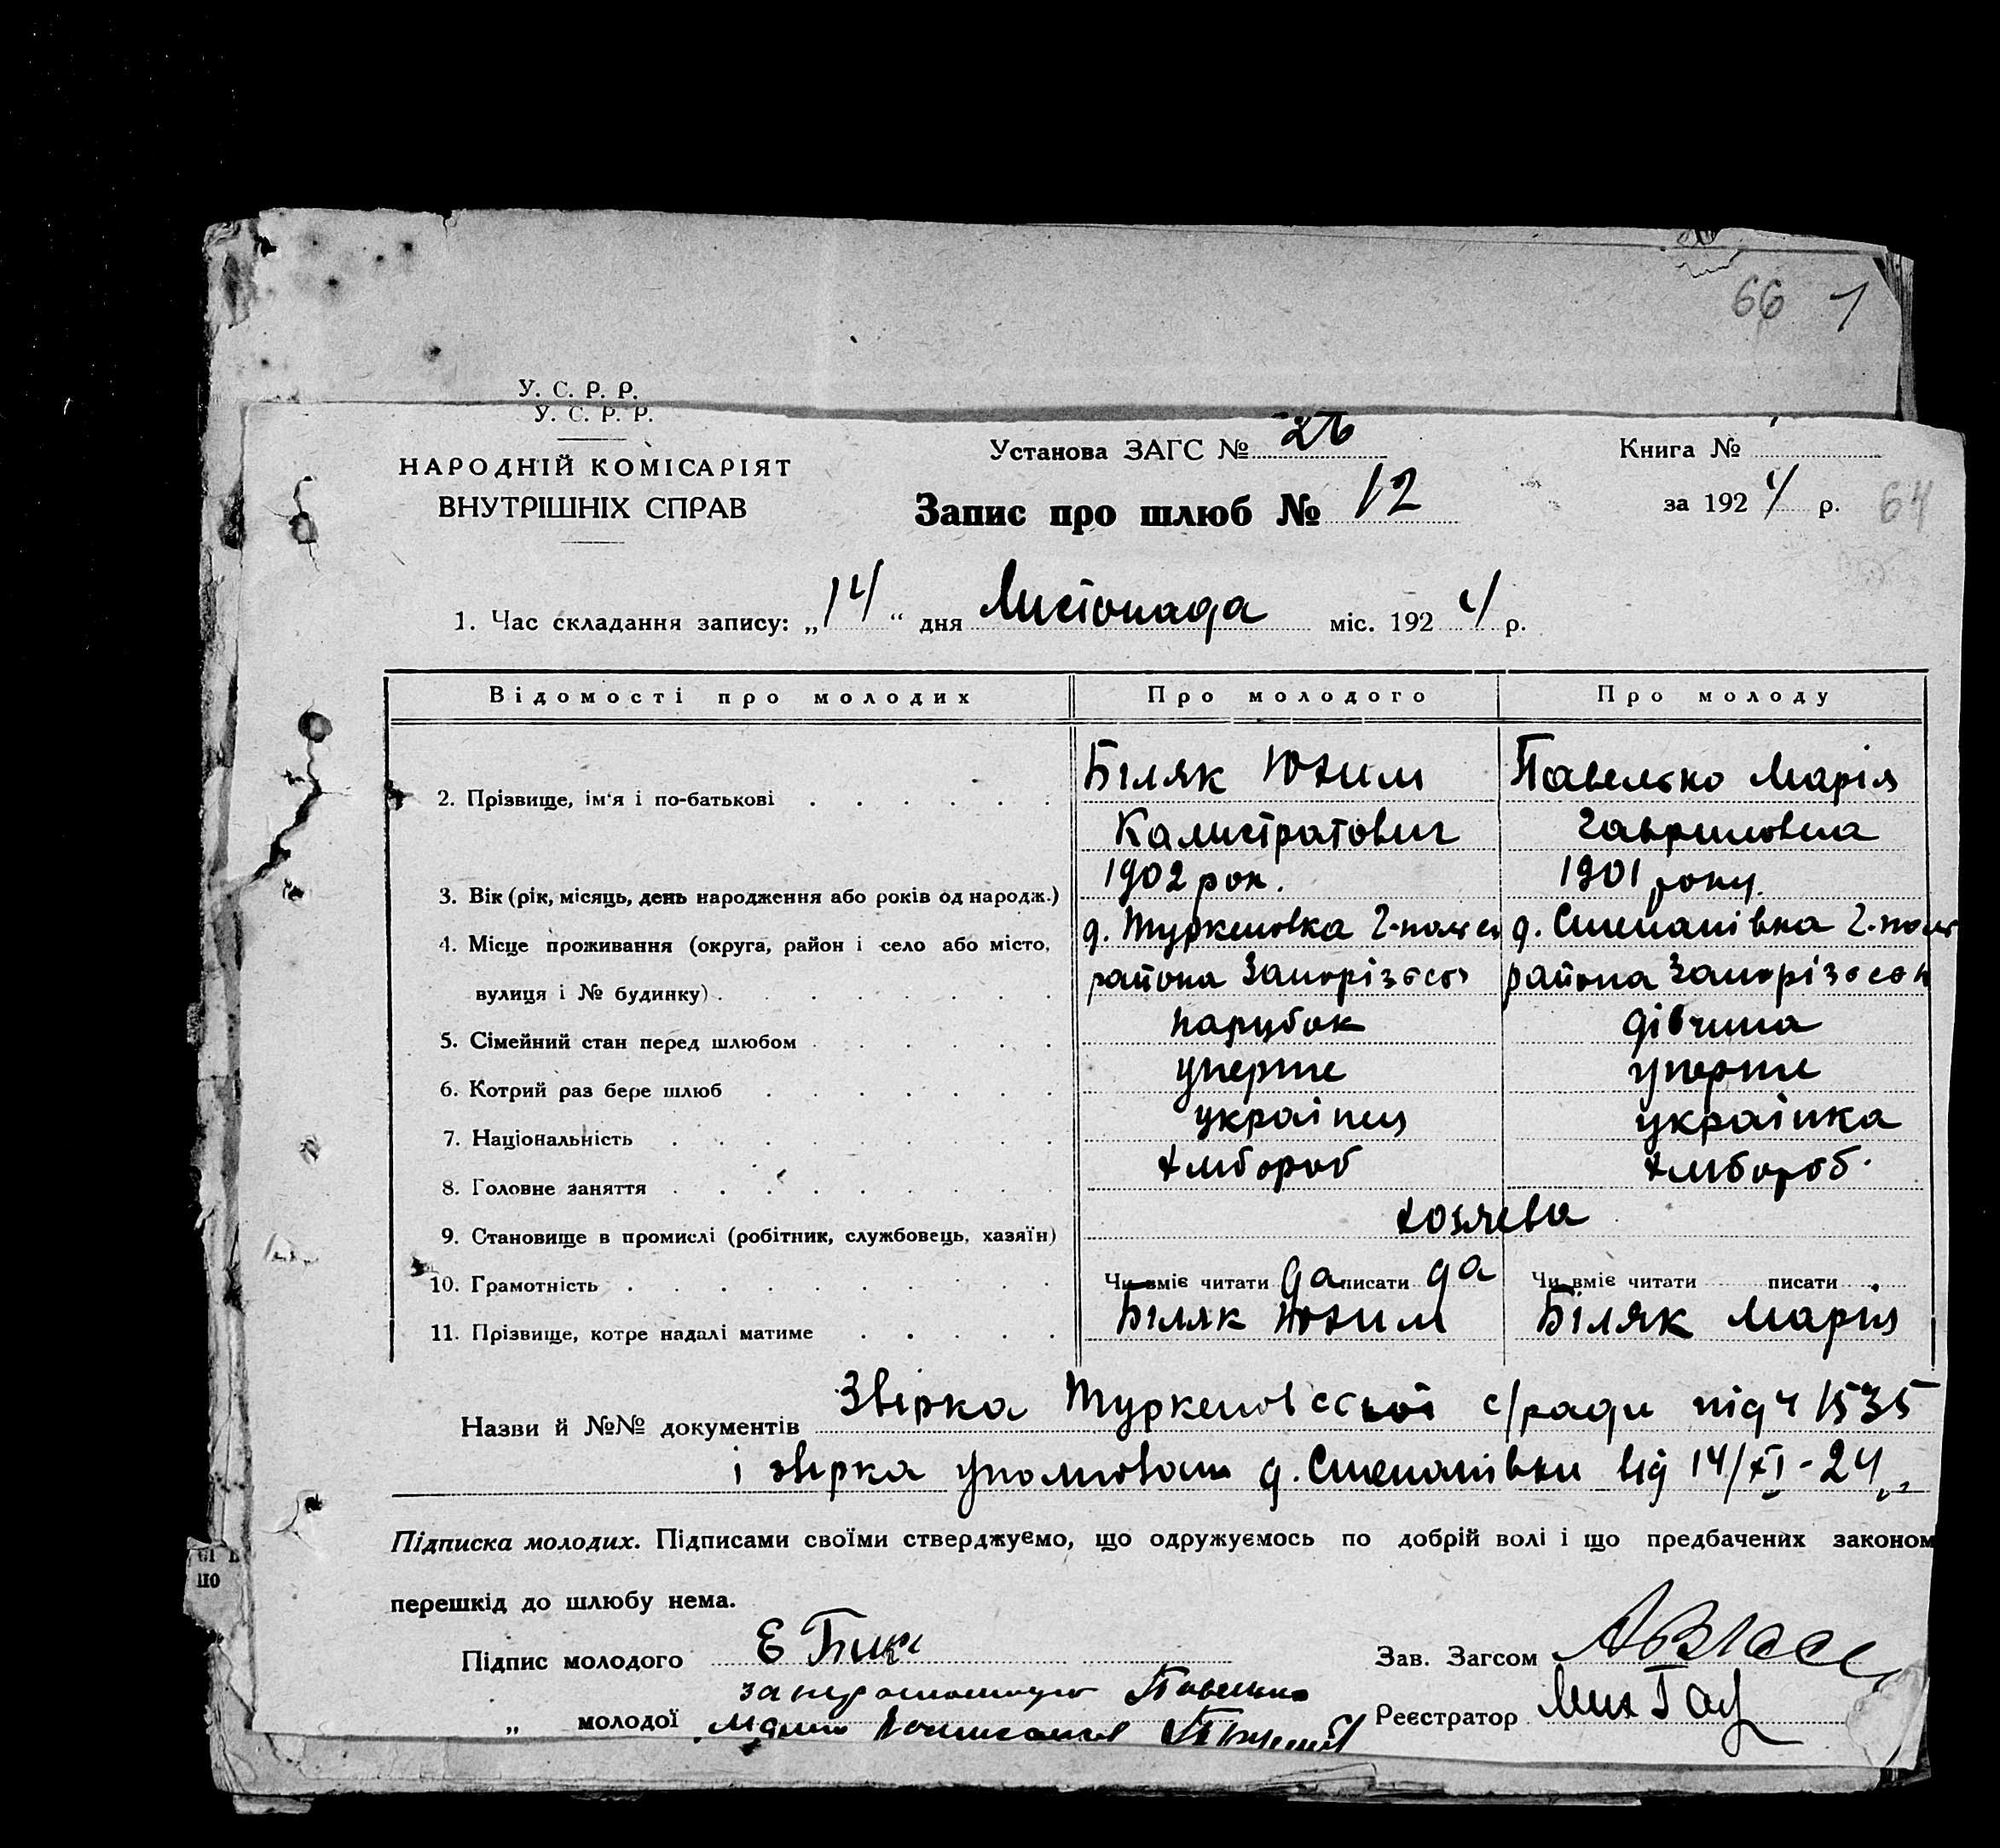 66 1
У. С. Р. Р.
У. С. Р. Р.
НАРОДНІЙ КОМІСАРІЯТ
ВНУТРІШНІХ СПРАВ
Установа ЗАГС № 26
Книга №
Запис про шлюб № 12
за 1924 р. 64
1. Час складання запису: „14“ дня Листопада міс. 1924 р.
Відомості про молодих Про молодого Про молоду
2. Прізвище, ім'я і по-батькові Біляк Юхим Павелко Марія
Калистратович Гавриловна
3. Вік (рік, місяць, день народження або років од народж.) 1902 рок. 1901 року.
4. Місце проживання (округа, район і село або місто, д. Туркеновка Г-польс д. Степанівка Г-поль
вулиця і № будинку) района Запорізськ района Запорізськ
5. Сімейний стан перед шлюбом парубок дівчина
6. Котрий раз бере шлюб уперше уперше
7. Національність украінец украінка
8. Головне заняття хлібороб хлібороб.
9. Становище в промислі (робітник, службовець, хазяїн) хозяева
10. Грамотність Чи вміє читати да писати да Чи вміє читати писати
11. Прізвище, котре надалі матиме Біляк Юхим Біляк Марія
Назви й №№ документів Звірка Туркеновської с/ради під ч 1535
і звірка уполнован д. Степанівки від 14/XI-24
Підписка молодих. Підписами своїми стверджуємо, що одружуємось по добрій волі і що предбачених законом
перешкід до шлюбу нема.
Підпис молодого Е Зав. Загсом
Павелко
„ молодої Реєстратор
61
по